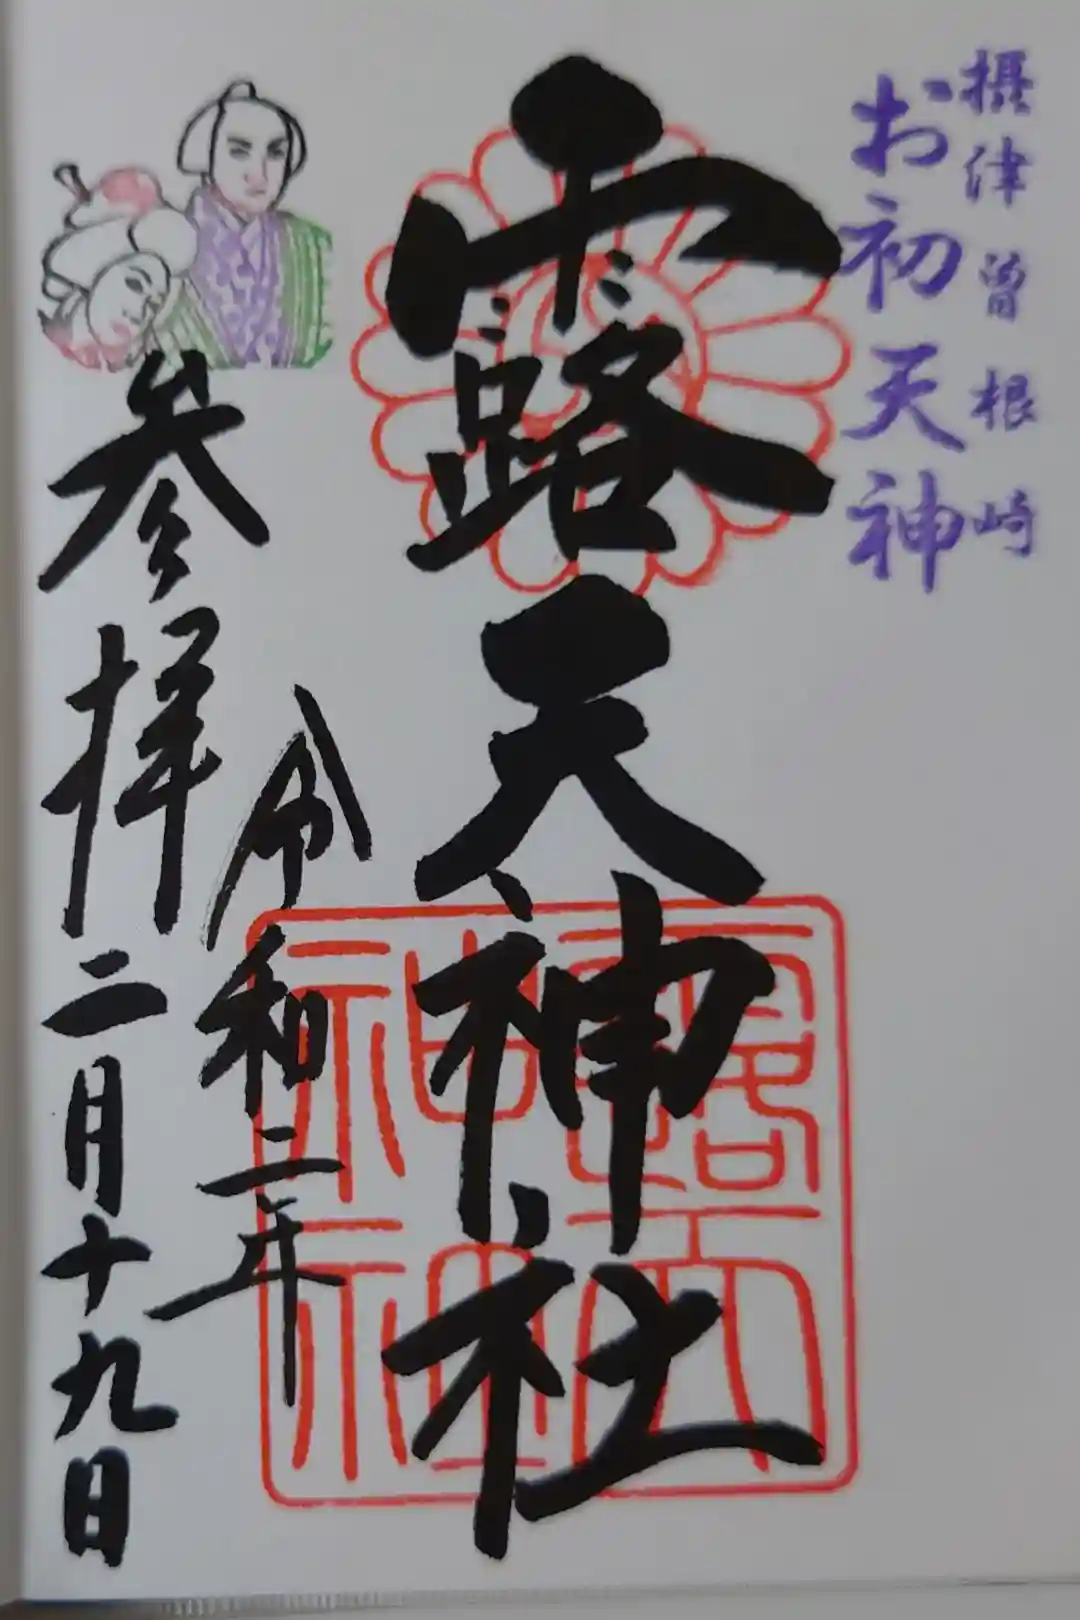 摂津曽根崎
お初天神
露天神社
露天神社
令和二年
参拝二月十九日